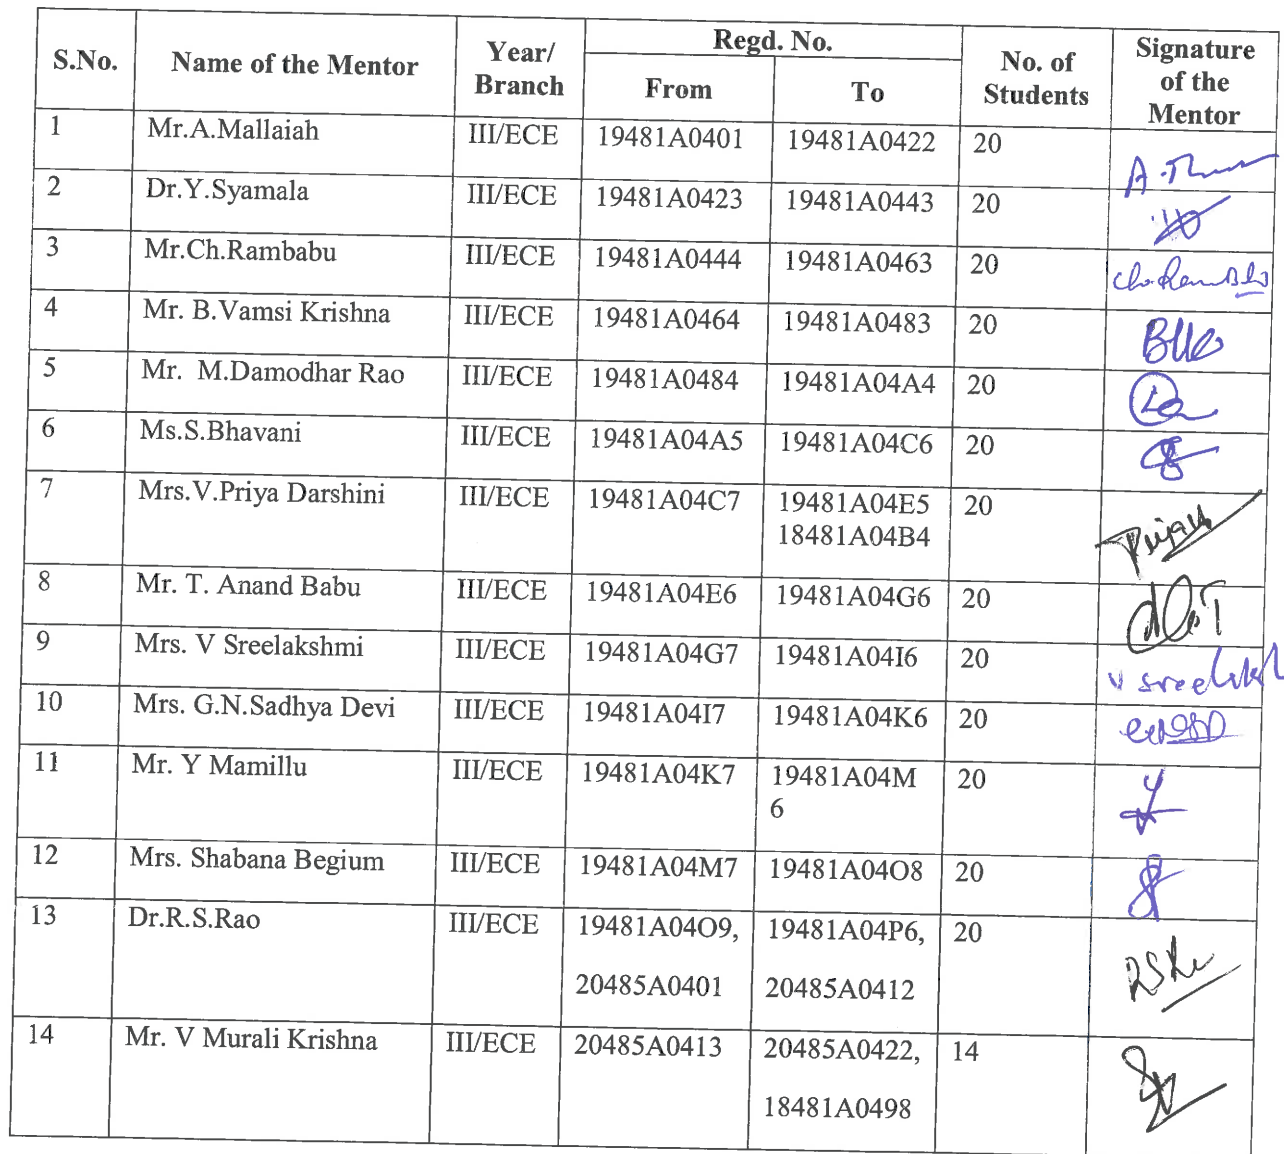 S.No. Name of the Mentor Year/ Branch Regd. No. No. of Students Signature of the Mentor
From To
1 Mr.A.Mallaiah III/ECE 19481A0401 19481A0422 20
2 Dr.Y.Syamala III/ECE 19481A0423 19481A0443 20
3 Mr.Ch.Rambabu III/ECE 19481A0444 19481A0463 20
4 Mr. B.Vamsi Krishna III/ECE 19481A0464 19481A0483 20
5 Mr. M.Damodhar Rao III/ECE 19481A0484 19481A04A4 20
6 Ms.S.Bhavani III/ECE 19481A04A5 19481A04C6 20
7 Mrs.V.Priya Darshini III/ECE 19481A04C7 19481A04E5 20
18481A04B4
8 Mr. T. Anand Babu III/ECE 19481A04E6 19481A04G6 20
9 Mrs. V Sreelakshmi III/ECE 19481A04G7 19481A04I6 20
10 Mrs. G.N.Sadhya Devi III/ECE 19481A04I7 19481A04K6 20
11 Mr. Y Mamillu III/ECE 19481A04K7 19481A04M 20
6
12 Mrs. Shabana Begium III/ECE 19481A04M7 19481A04O8 20
13 Dr.R.S.Rao III/ECE 19481A04O9, 19481A04P6, 20
20485A0401 20485A0412
14 Mr. V Murali Krishna III/ECE 20485A0413 20485A0422, 14
18481A0498